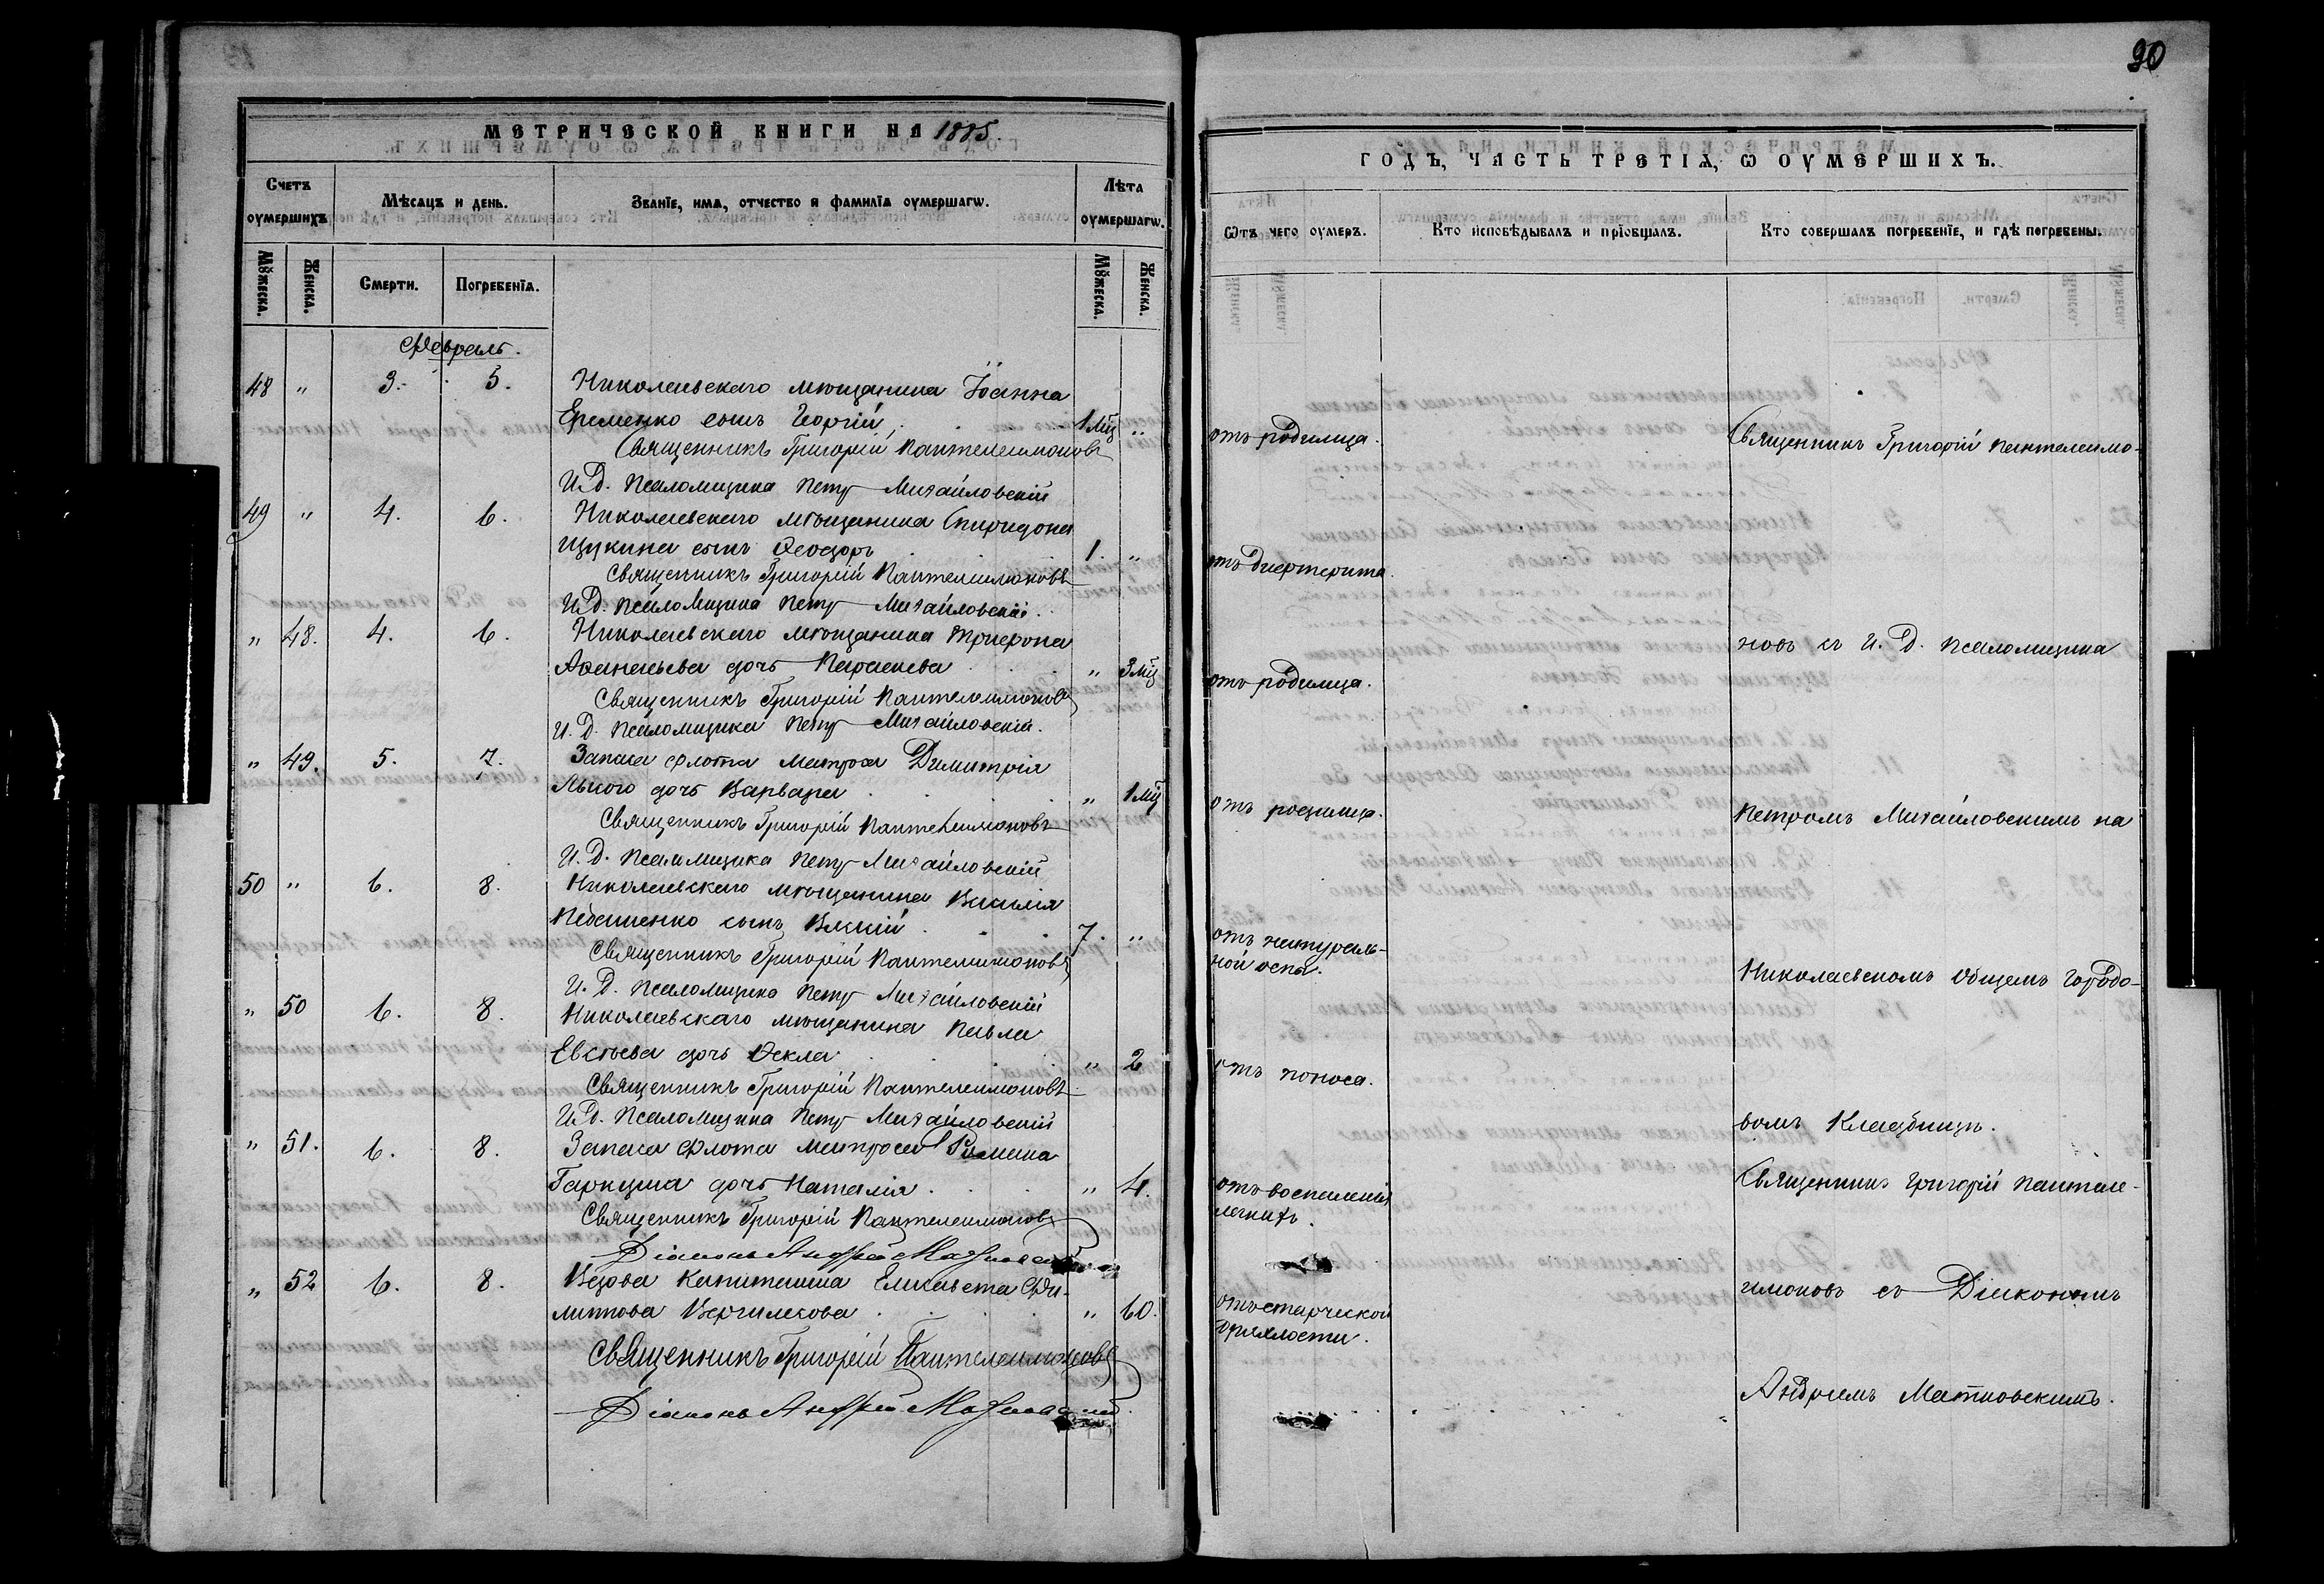 МЕТРИЧЕСКОЙ КНИГИ НА 1885.
Счетъ оумершихъ.
Мѣсяцъ и день.
Званїе, имя, отчество и фамилїа оумершагѡ.
Лѣта оумершагѡ.
Мꙋжеска.
Женска.
Смерти.
Погребенїѧ.
Мꙋжеска.
Женска.
Февраль.
48 " 3. 5. Николаевскаго мѣщанина Іоанна
Еременко сынъ Георгій 1 мц "
Священникъ Григорій Пантелеимоновъ
И.Д. Псаломщика Петръ Михайловскій
49 " 4. 6. Николаевскаго мѣщанина Спиридона
Щукина сынъ Ѳеодоръ 1. "
Священникъ Григорій Пантелеимоновъ
И.Д. Псаломщика Петръ Михайловскій.
" 48. 4. 6. Николаевскаго мѣщанина Трифона
Аѳанасьева дочь Параскева " 3 мц
Священникъ Григорій Пантелеимоновъ
И.Д. Псаломщика Петръ Михайловскій.
" 49. 5. 7. Запаса флота матроса Димитрія
Лысого дочь Варвара " 1 мц
Священникъ Григорій Пантелеимоновъ
И.Д. Псаломщика Петръ Михайловскій
50 " 6. 8. Николаевскаго мѣщанина Василія
сынъ 7. "
Священникъ Григорій Пантелеимоновъ
И.Д. Псаломщика Петръ Михайловскій
" 50 6. 8. Николаевскаго мѣщанина Павла
Евсѣева дочь Ѳекла " 2
Священникъ Григорій Пантелеимоновъ
И.Д. Псаломщика Петръ Михайловскій
" 51. 6. 8. Запаса флота матроса Романа
Гаркуша дочь Наталія " 4.
Священникъ Григорій Пантелеимоновъ
Діаконъ Андрей
" 52 6. 8. Вдова Капитанша Елисавета Фи-
липпова " 60.
Священникъ Григорій Пантелеимоновъ
Діаконъ Андрей
90
ГОДЪ, ЧАСТЬ ТРЕТІѦ, Ѡ ОУМЕРШИХЪ.
Ѿтъ чего оумеръ.
Кто исповѣдывалъ и прїобщалъ.
Кто совершалъ погребенїе, и гдѣ погребены.
отъ родимца.
Священникъ Григорій Пантелеимо-
отъ дифтерита.
новъ съ И.Д. Псаломщика
отъ родимца.
отъ родимца.
Петромъ Михайловскимъ на
отъ натураль-
ной оспы.
Николаевскомъ общемъ городо-
отъ поноса.
вомъ Кладбищѣ.
отъ воспаленія
легкихъ.
Священникъ Григорій Пантеле-
имоновъ съ Діакономъ
отъ старческой
дряхлости.
Андреемъ